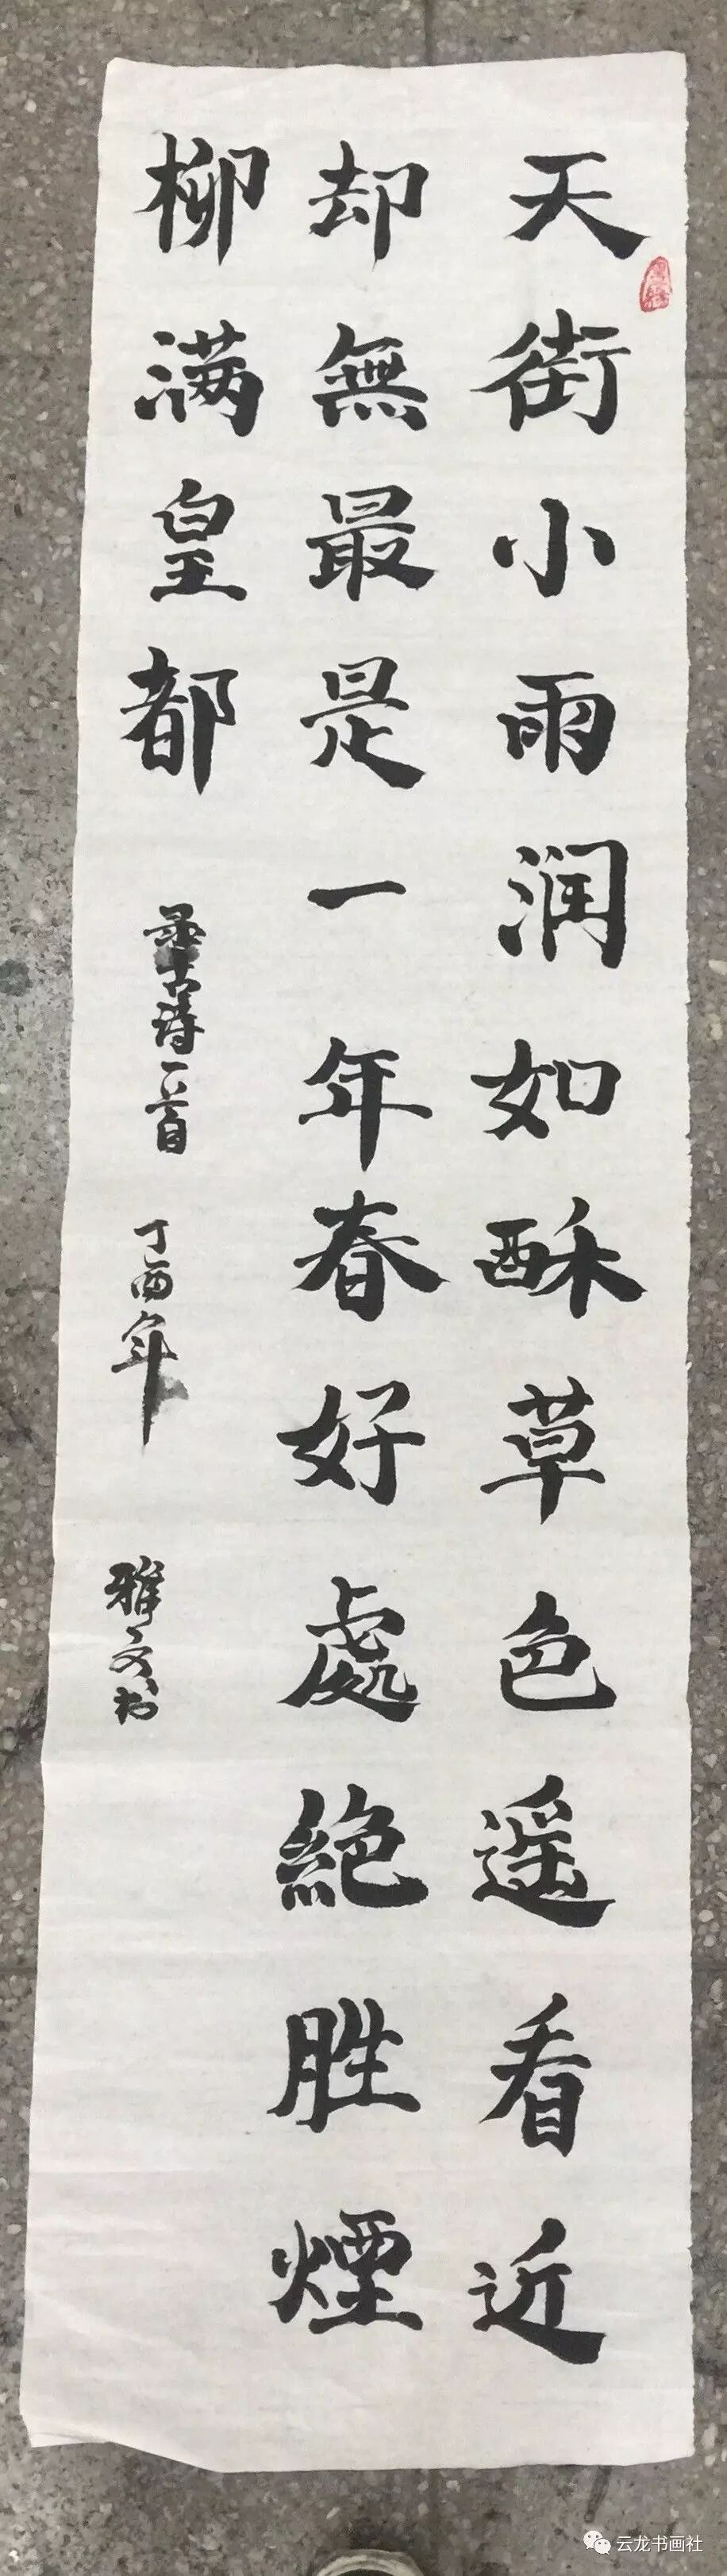 天街小雨润如酥草色遥看近
却無最是一年春好處絕胜煙
柳满皇都
录古诗一首
丁酉年
雅文书
云龙书画社